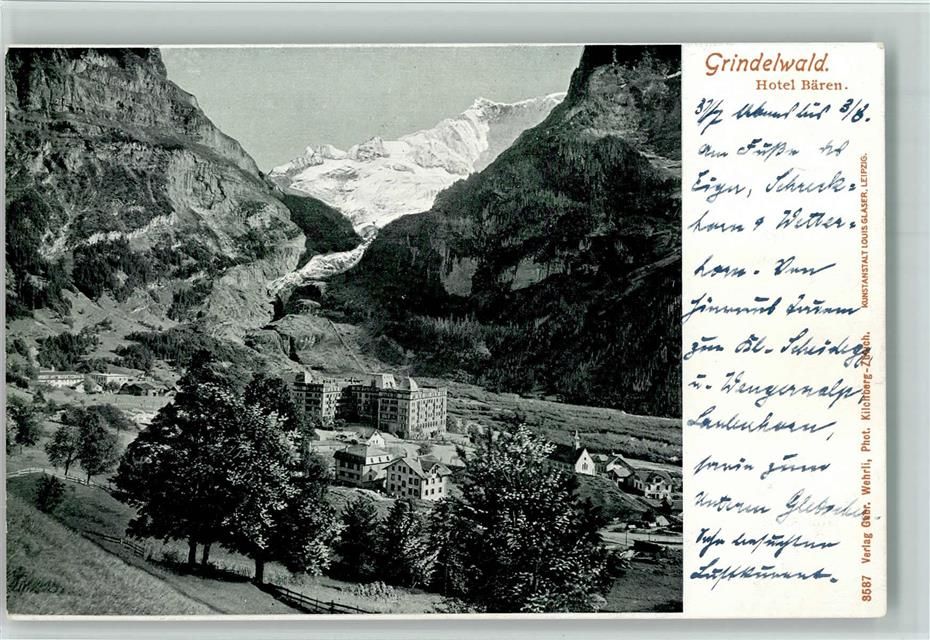 Grindelwald.
Hotel Bären.
31/7 Abends bis 3/8.
Am Fuße des
Eiger, Schreck=
horn & Wetter=
horn. Von
hieraus Touren
zur Kl. Scheidegg
u. Wengernalp
Lauberhorn,
sowie zum
unteren Gletscher
Sehr besuchter
Luftkurort.
KUNSTANSTALT LOUIS GLASER, LEIPZIG.
8587 Verlag Gebr. Wehrli, Phot. Kilchberg-Zürich.